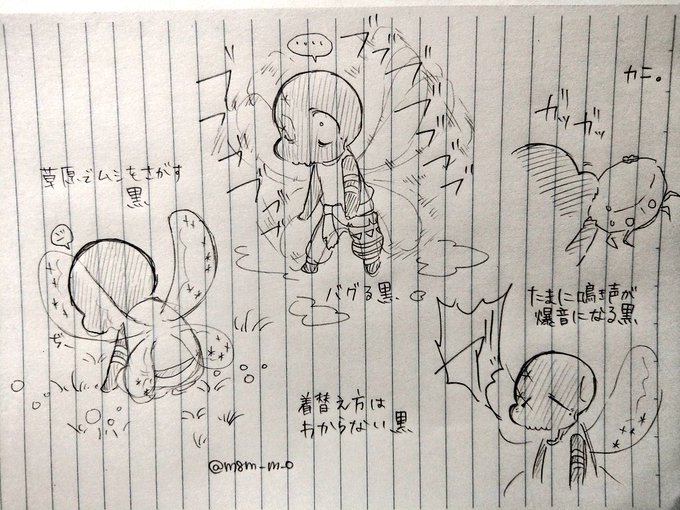 ‥‥
ブブブブブブブ
ブブブブブ
カニ。
ガッガッ
草原でムシをさがす
黒
ジ
じー
バグる黒
たまに鳴き声が
爆音になる黒
着替え方は
わからない黒
@m8m_m_o